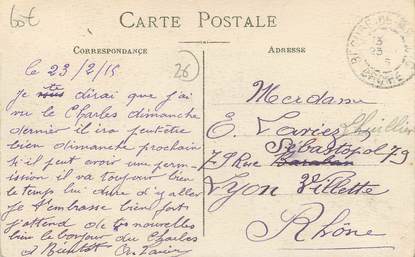 60€
CARTE POSTALE
CORRESPONDANCE
ADRESSE
26
le 23/2/15
Je te dirai que j'ai
vu le Charles dimanche
dernier il ira peut etre
bien dimanche prochain
si il peut avoir une perm-
ission il va toujour bien
le temp lui dure d'y aller
Je t'embrasse bien fort
j'attend de tes nouvelles
bien le bonjour du Charles
a Bientot
Merdame
E.
Sébastopol 79
79 Rue Baraban
Lyon Villette
Rhône